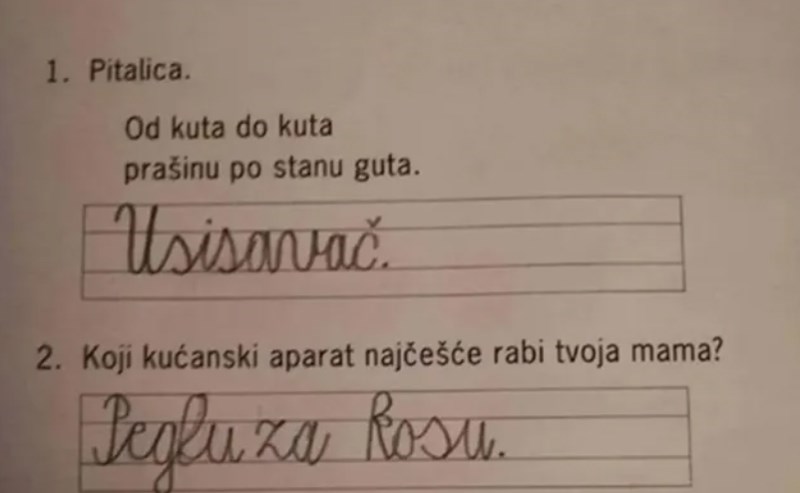 1. Pitalica.
Od kuta do kuta
prašinu po stanu guta.
Usisavač.
2. Koji kućanski aparat najčešće rabi tvoja mama?
Peglu za kosu.